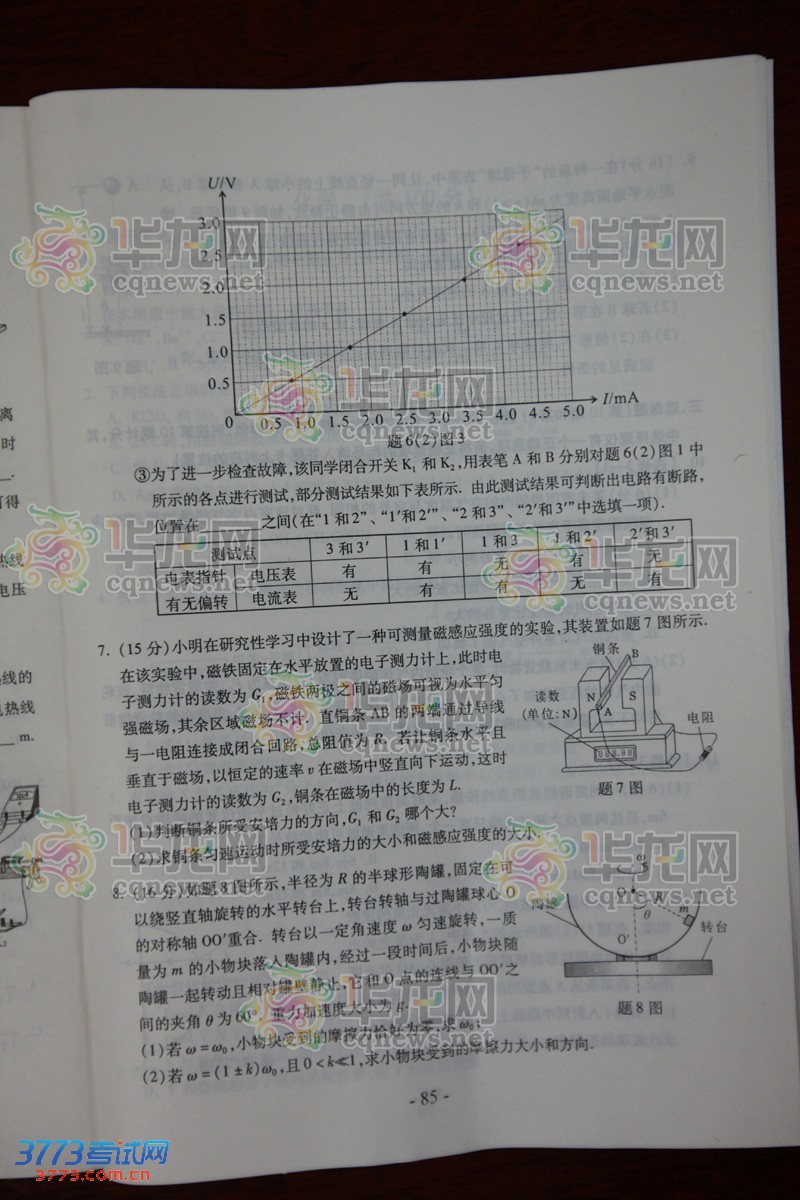 U/V
3.0
2.5
2.0
1.5
1.0
0.5
0
0.5 1.0 1.5 2.0 2.5 3.0 3.5 4.0 4.5 5.0
I/mA
题6(2)图3
③为了进一步检查故障,该同学闭合开关K₁和K₂,用表笔A和B分别对题6(2)图1中
所示的各点进行测试,部分测试结果如下表所示. 由此测试结果可判断出电路有断路,
位置在________之间(在“1和2”、“1′和2′”、“2和3”、“2′和3′”中选填一项).
测试点 3和3′ 1和1′ 1和3 1和2′ 2′和3′
电表指针 电压表 有 有 无 有 无
有无偏转 电流表 无 有 有 无 有
7. (15分)小明在研究性学习中设计了一种可测量磁感应强度的实验,其装置如题7图所示.
在该实验中,磁铁固定在水平放置的电子测力计上,此时电
子测力计的读数为G₁,磁铁两极之间的磁场可视为水平匀
强磁场,其余区域磁场不计. 直铜条AB的两端通过导线
与一电阻连接成闭合回路,总阻值为R. 若让铜条水平且
垂直于磁场,以恒定的速率v在磁场中竖直向下运动,这时
电子测力计的读数为G₂,铜条在磁场中的长度为L.
(1)判断铜条所受安培力的方向,G₁和G₂哪个大?
(2)求铜条匀速运动时所受安培力的大小和磁感应强度的大小.
铜条
B
N
S
A
读数
(单位:N)
电阻
题7图
8. (16分)如题8图所示,半径为R的半球形陶罐,固定在可
以绕竖直轴旋转的水平转台上,转台转轴与过陶罐球心O
的对称轴OO′重合. 转台以一定角速度ω匀速旋转,一质
量为m的小物块落入陶罐内,经过一段时间后,小物块随
陶罐一起转动且相对罐壁静止,它和O点的连线与OO′之
间的夹角θ为60°. 重力加速度大小为g.
(1)若ω=ω₀,小物块受到的摩擦力恰好为零,求ω₀;
(2)若ω=(1±k)ω₀,且0<k≪1,求小物块受到的摩擦力大小和方向.
ω
O
R
θ
m
陶罐
O′
转台
题8图
- 85 -
离
时
热线
电压
线的
电热线
m.
华龙网
cqnews.net
3773考试网
www.3773.com.cn